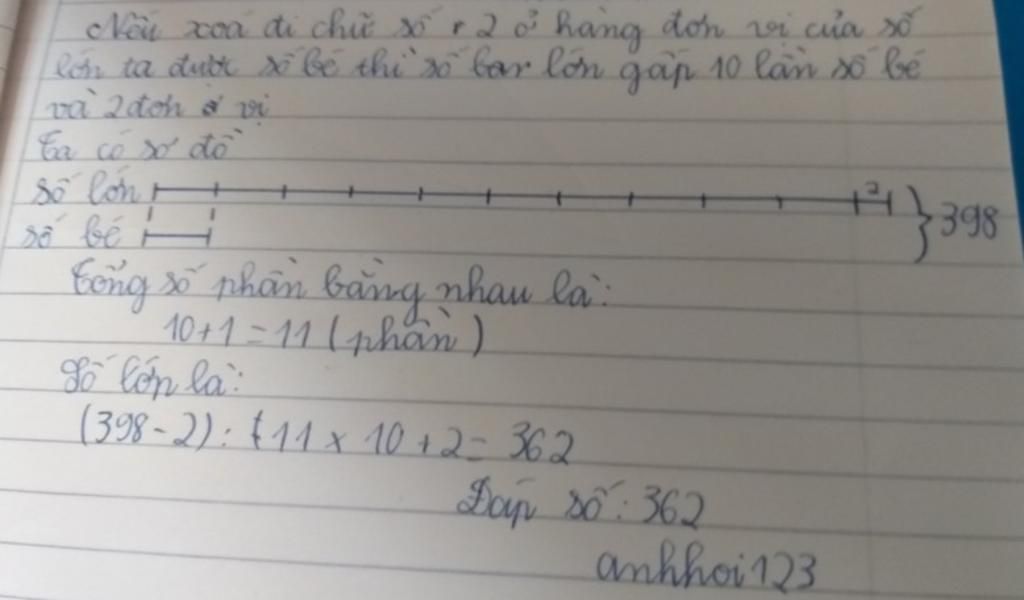 Nếu xoá đi chữ số 2 ở hàng đơn vị của số
lớn ta được số bé thì số lớn gấp 10 lần số bé
và 2 đơn vị
Ta có sơ đồ
số lớn 2
số bé } 398
Tổng số phần bằng nhau là:
10+1=11 (phần)
Số lớn là:
(398-2):11 x 10 +2= 362
Đáp số: 362
anhhoi123